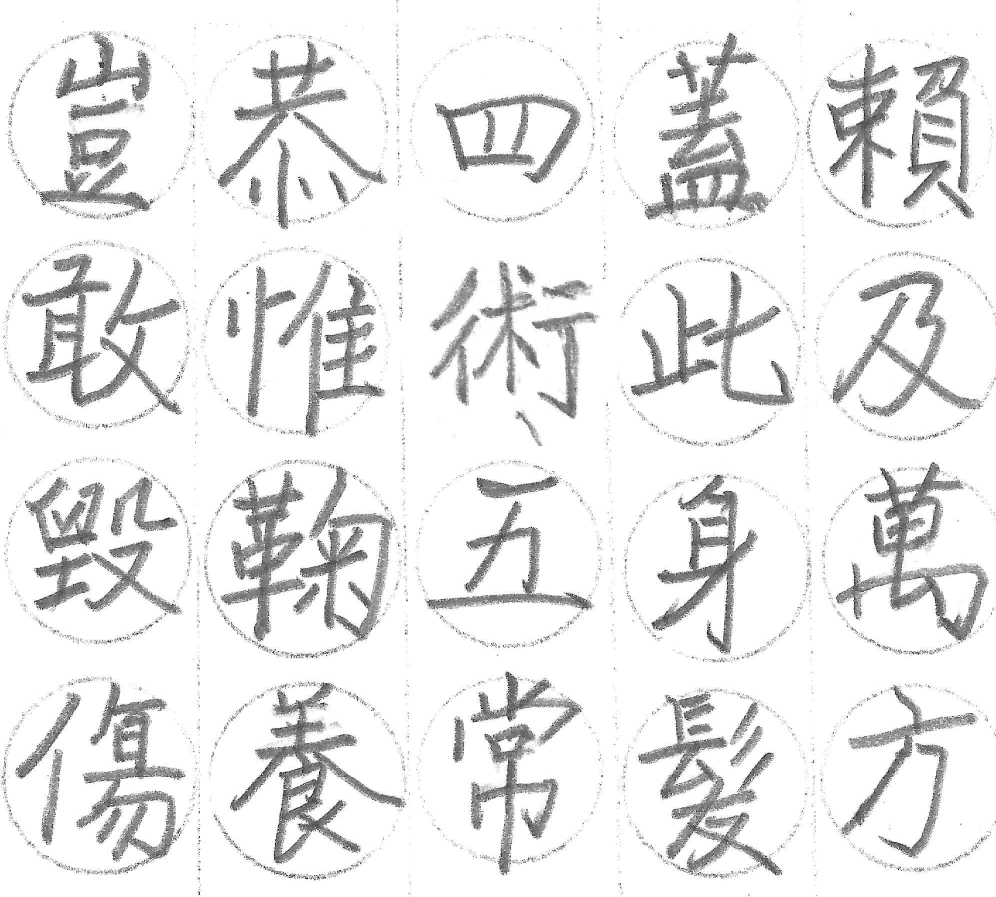 賴及萬方
蓋此身髮
四術五常
恭惟鞠養
豈敢毀傷